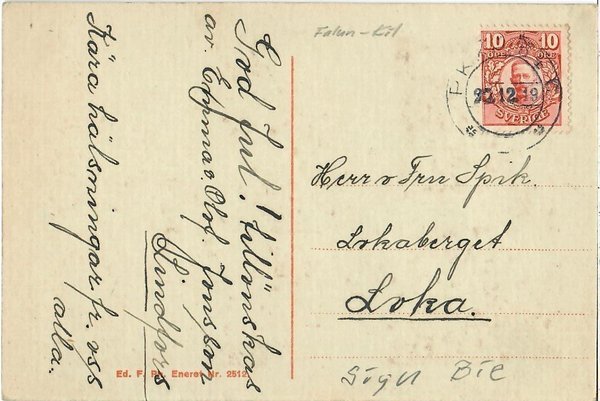 God Jul! tillönskas
av. Emma o Olof. Jonsson
Lindfors
Kära hälsningar fr. oss
alla.
Falun-Kil
10 10
SVERIGE
22.12.19
Herr o Fru Spik.
Lokaberget
Loka.
Sign Bie
Ed. F. Eneret Nr. 2512